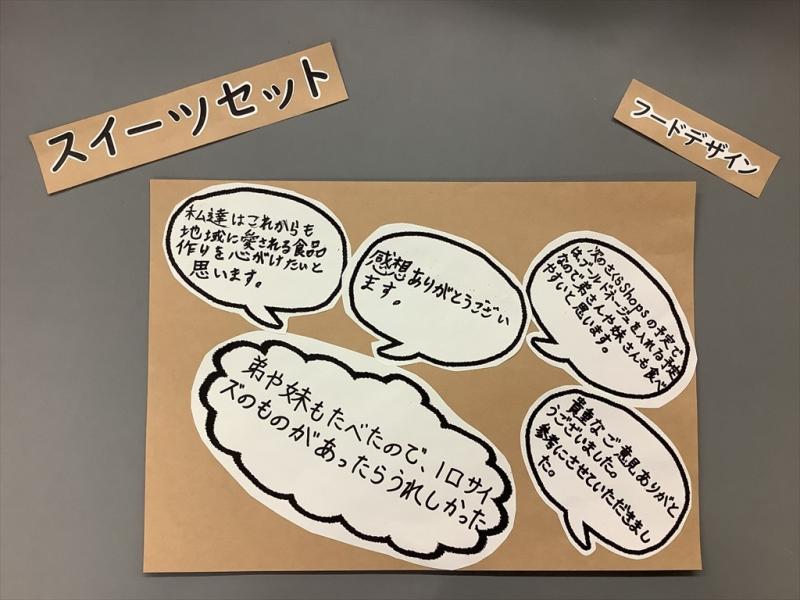 スイーツセット
フードデザイン
私達はこれからも
地域に愛される食品
作りを心がけたいと
思います。
感想ありがとうござい
ます。
次のさくらShopsの予定で
は、ブールドネージュを入れる予定
なので弟さんや妹さんも食べ
やすいと思います。
弟や妹もたべたので、1口サイ
ズのものがあったらうれしかった
貴重なご意見ありがと
うございました。
参考にさせていただきまし
た。